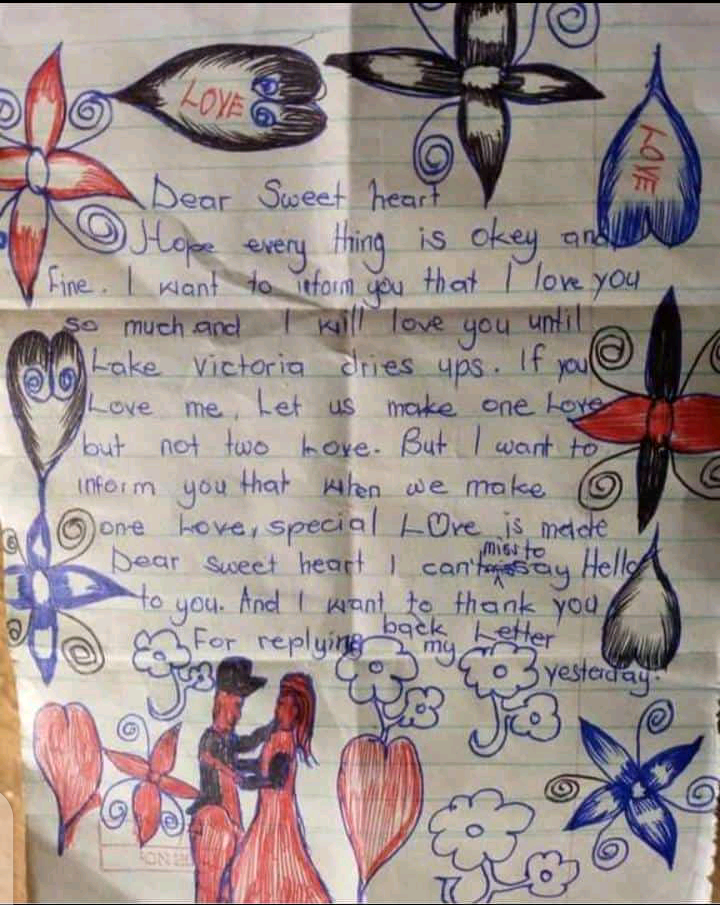 LOVE
LOVE
Dear Sweet heart
Hope every thing is okey and
fine. I want to inform you that I love you
so much and I will love you until
Lake Victoria dries ups. If you
Love me, Let us make one Love
but not two Love. But I want to
inform you that when we make
one Love, special LOve is made
Dear sweet heart I can't miss to say Hello
to you. And I want to thank you
For replying back my Letter
yesterday.